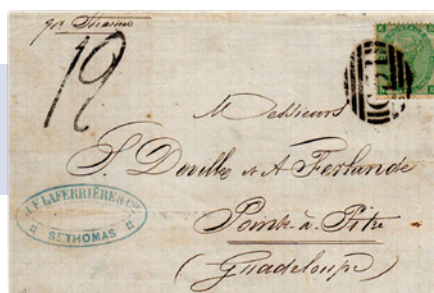 19
Messieurs
S. Deville et A Ferlande
Pointe-à-Pitre
(Guadeloupe)
J. F. LAFERRIÈRE & Cie
ST THOMAS